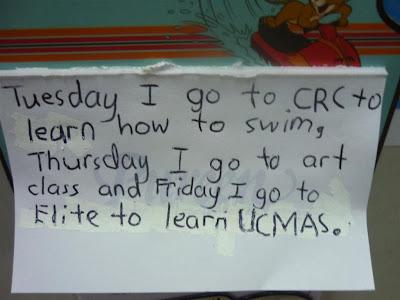 Tuesday I go to CRC to
learn how to swim,
Thursday I go to art
class and Friday I go to
Elite to learn UCMAS.